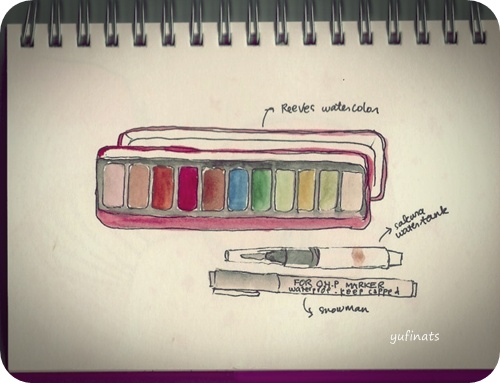 Reeves watercolor
sakura
watertank
FOR O.H.P MARKER
waterproof. keep capped
snowman
yufinats